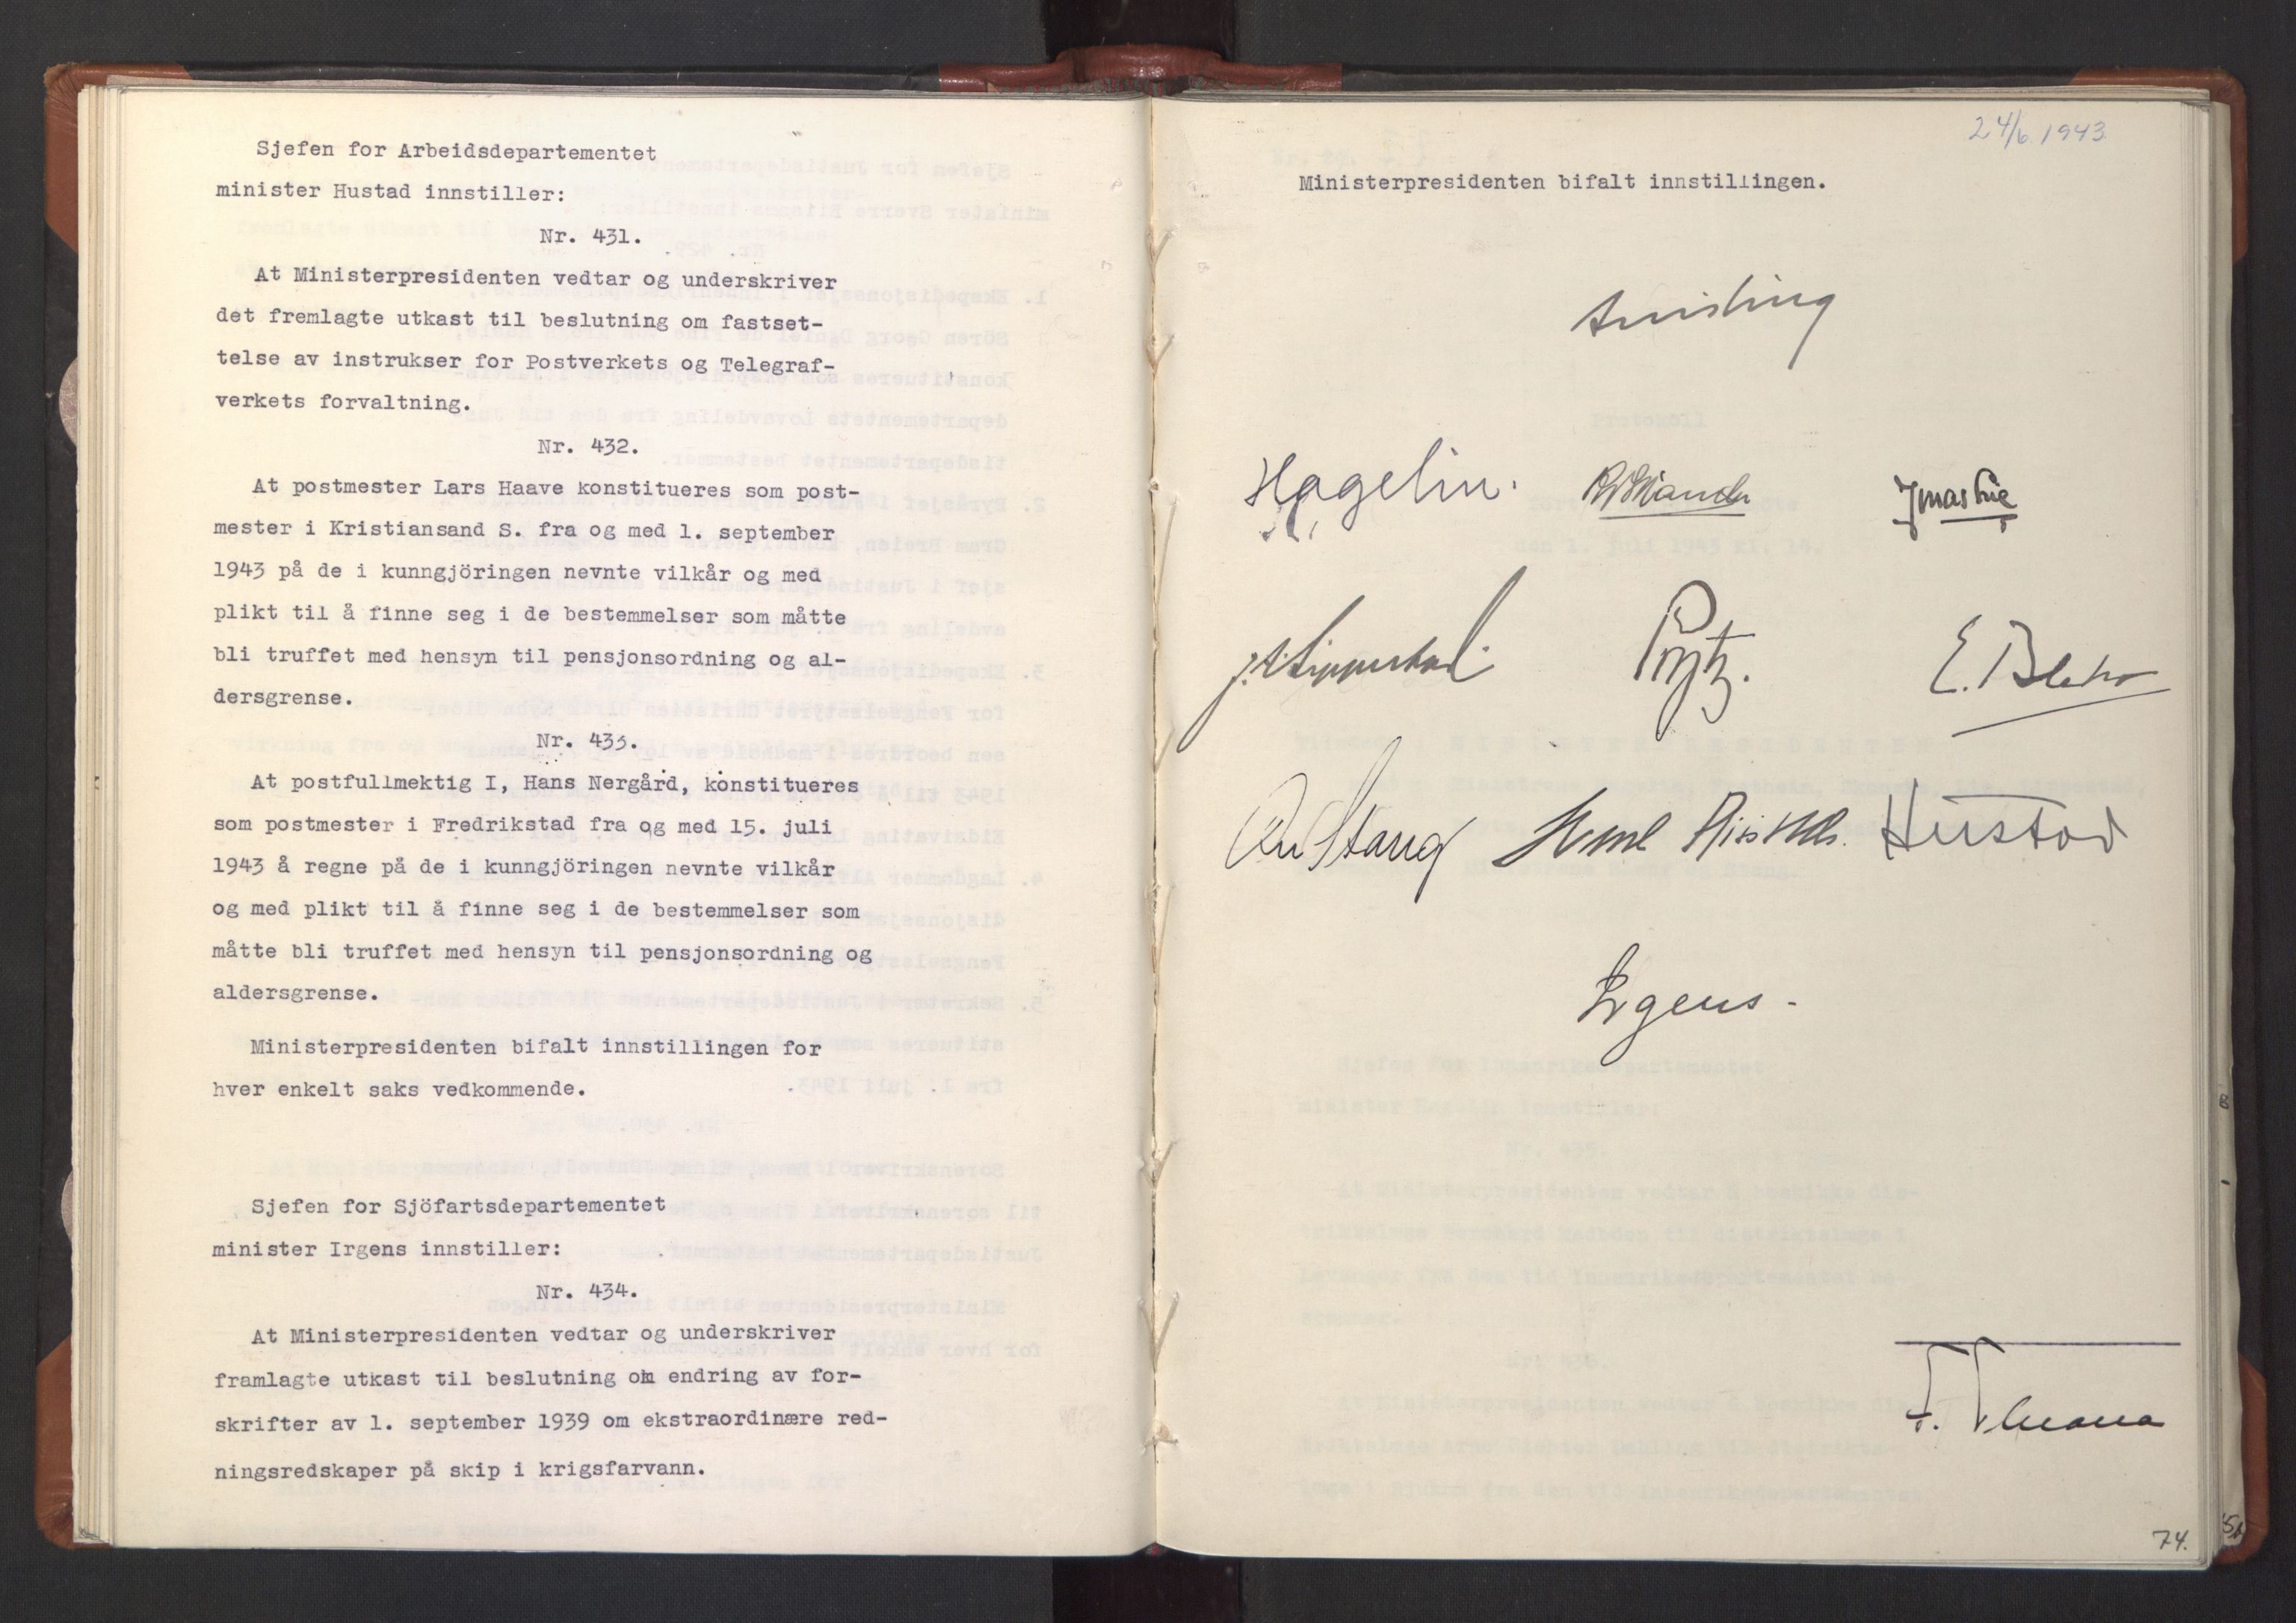 Sjefen for Arbeidsdepartementet
minister Hustad innstiller:
Nr. 431.
At Ministerpresidenten vedtar og underskriver
det fremlagte utkast til beslutning om fastset-
telse av instrukser for Postverkets og Telegraf-
verkets forvaltning.
Nr. 432.
At postmester Lars Haave konstitueres som post-
mester i Kristiansand S. fra og med 1. september
1943 på de i kunngjöringen nevnte vilkår og med
plikt til å finne seg i de bestemmelser som måtte
bli truffet med hensyn til pensjonsordning og al-
dersgrense.
Nr. 433.
At postfullmektig I, Hans Nergård, konstitueres
som postmester i Fredrikstad fra og med 15. juli
1943 å regne på de i kunngjöringen nevnte vilkår
og med plikt til å finne seg i de bestemmelser som
måtte bli truffet med hensyn til pensjonsordning og
aldersgrense.
Ministerpresidenten bifalt innstillingen for
hver enkelt saks vedkommende.
Sjefen for Sjöfartsdepartementet
minister Irgens innstiller:
Nr. 434.
At Ministerpresidenten vedtar og underskriver
framlagte utkast til beslutning om endring av for-
skrifter av 1. september 1939 om ekstraordinære red-
ningsredskaper på skip i krigsfarvann.
24/6 1943
Ministerpresidenten bifalt innstillingen.
Quisling
Hagelin. Jonas Lie
Prytz.
Stang Hustad
Irgens
74.